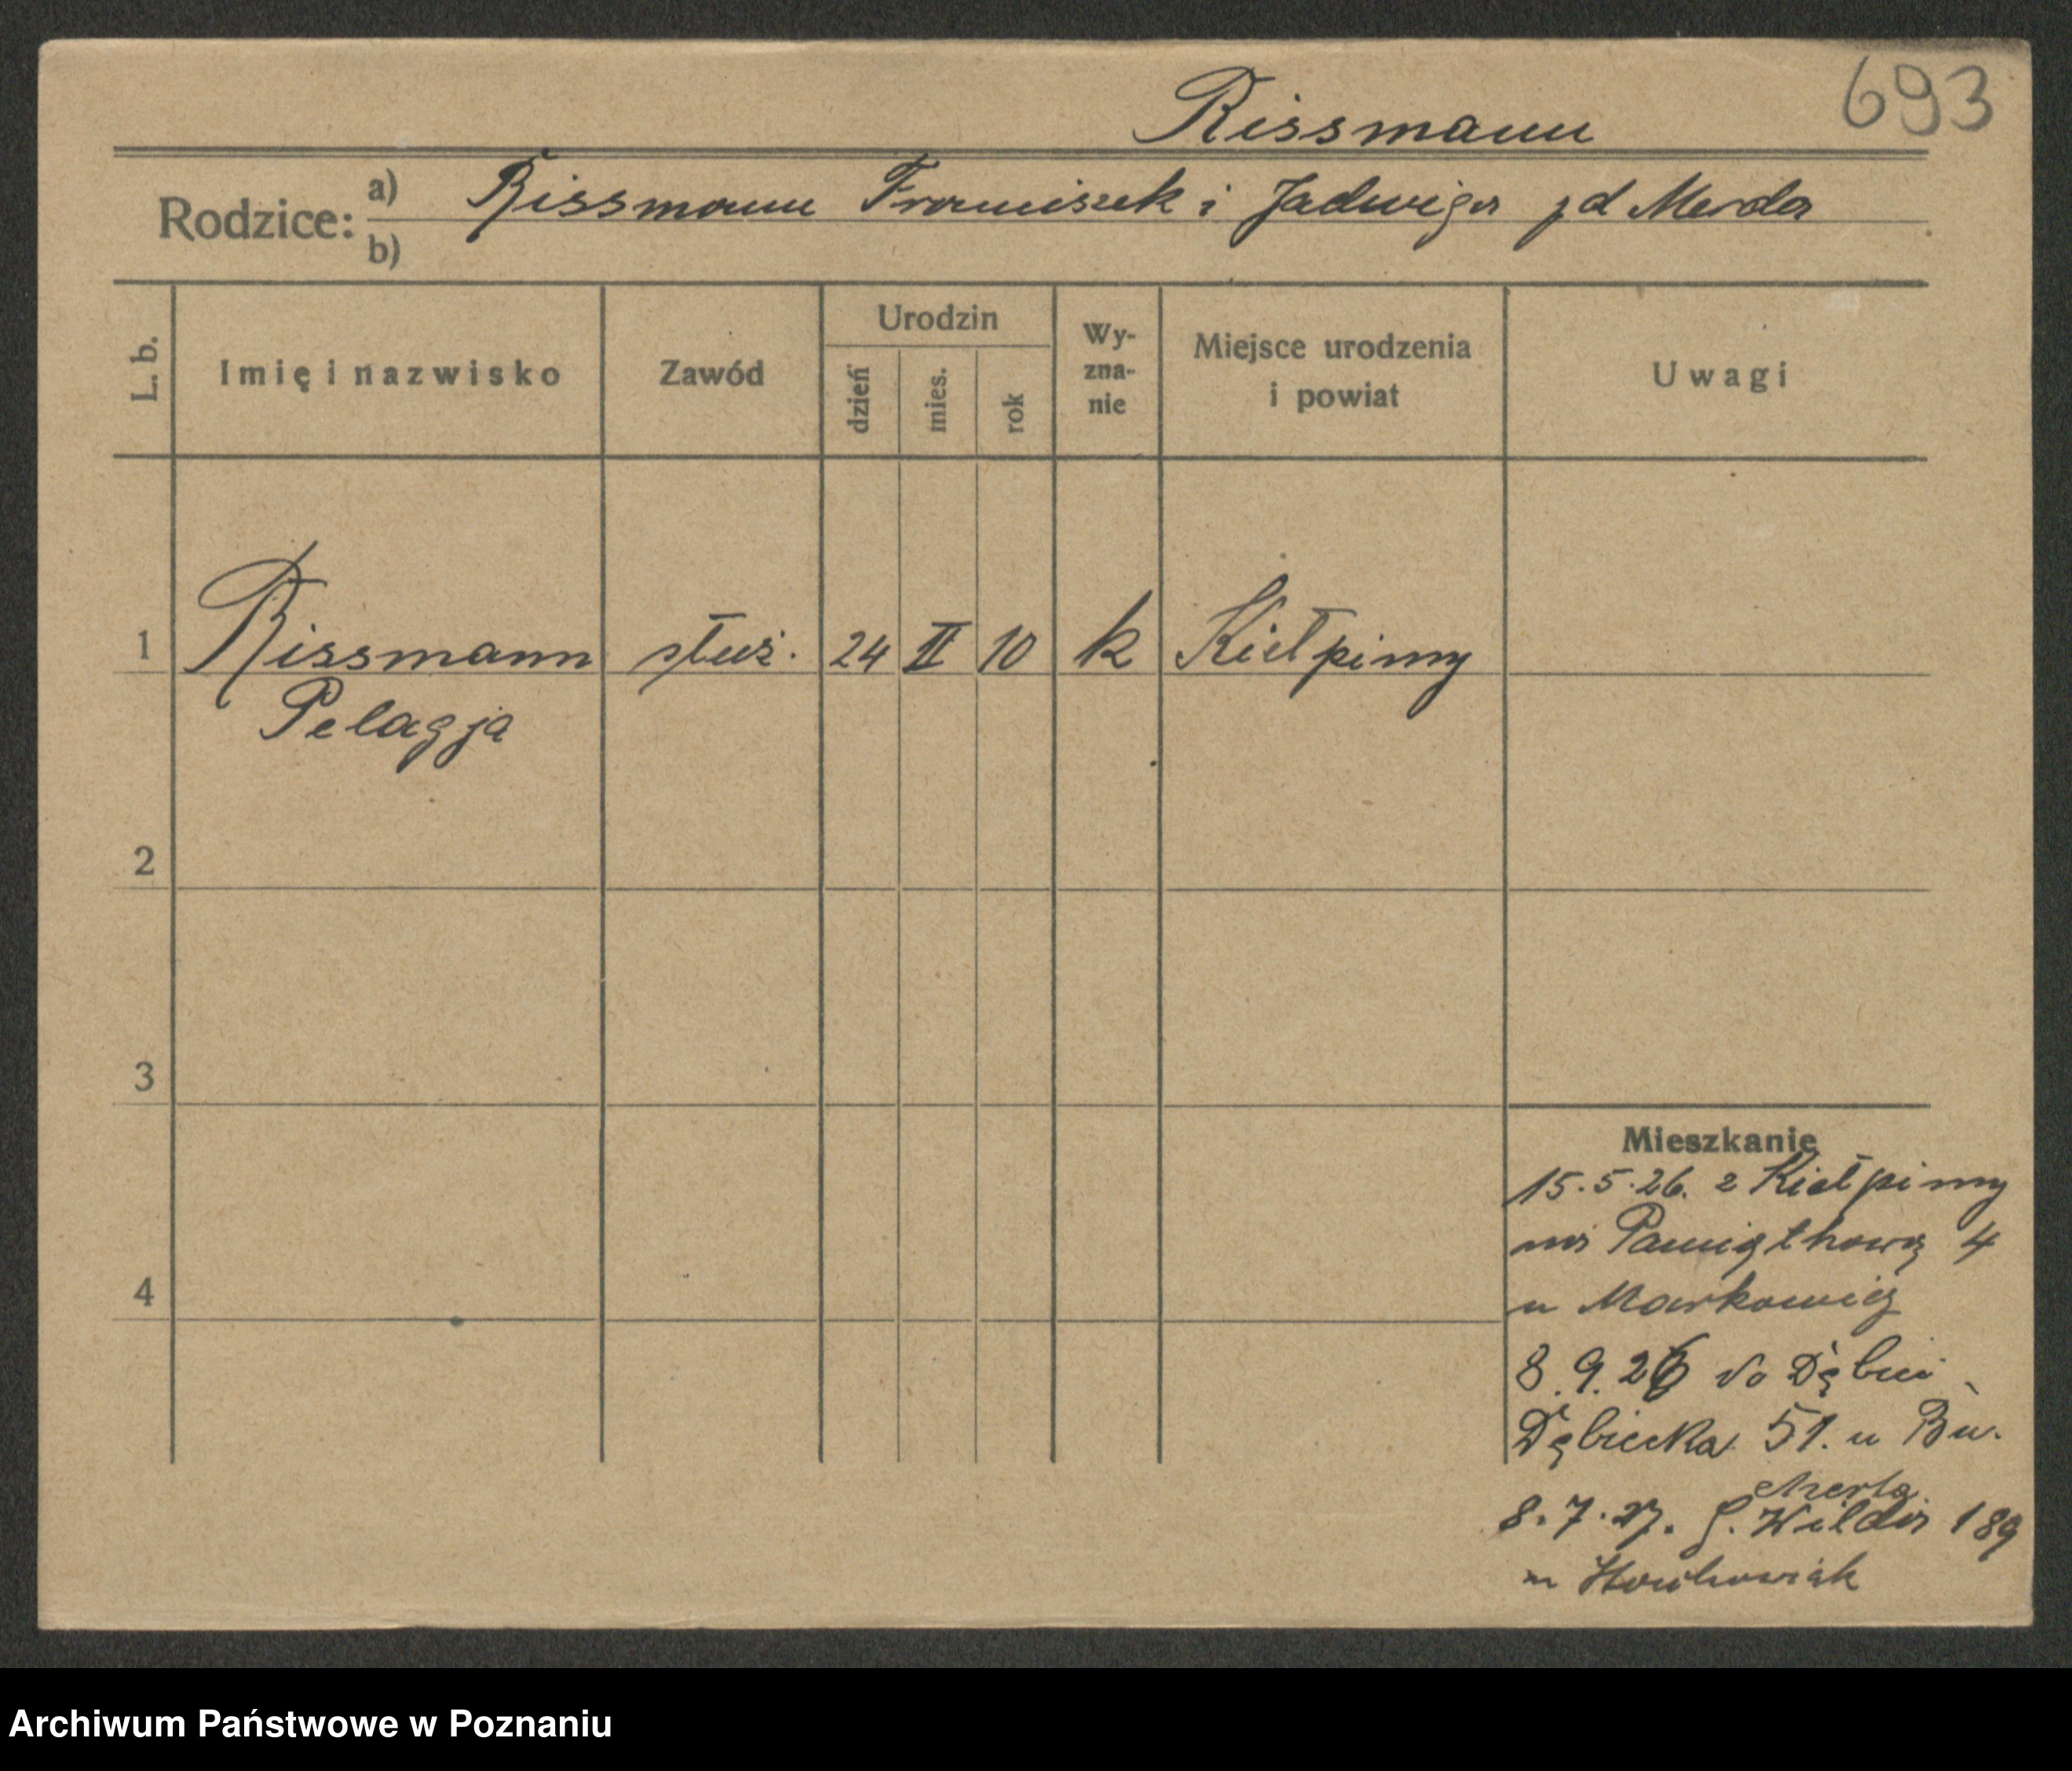 693
Rissmann
Rodzice: a) Rissmann Franciszek i Jadwiga zd Merda
b)
L. b. Imię i nazwisko Zawód Urodzin dzień mies. rok Wy-zna-nie Miejsce urodzenia i powiat Uwagi
1 Rissmann służ. 24 II 10 k Kiełpiny
Pelagja
2
3
4
Mieszkanie
15.5.26. z Kiełpiny
na Pamiątkową 4
u Markowicz
8.9.26 do Dębca
Dębiecka 51. u
8.7.27. G. Wilda 189
u
Archiwum Państwowe w Poznaniu